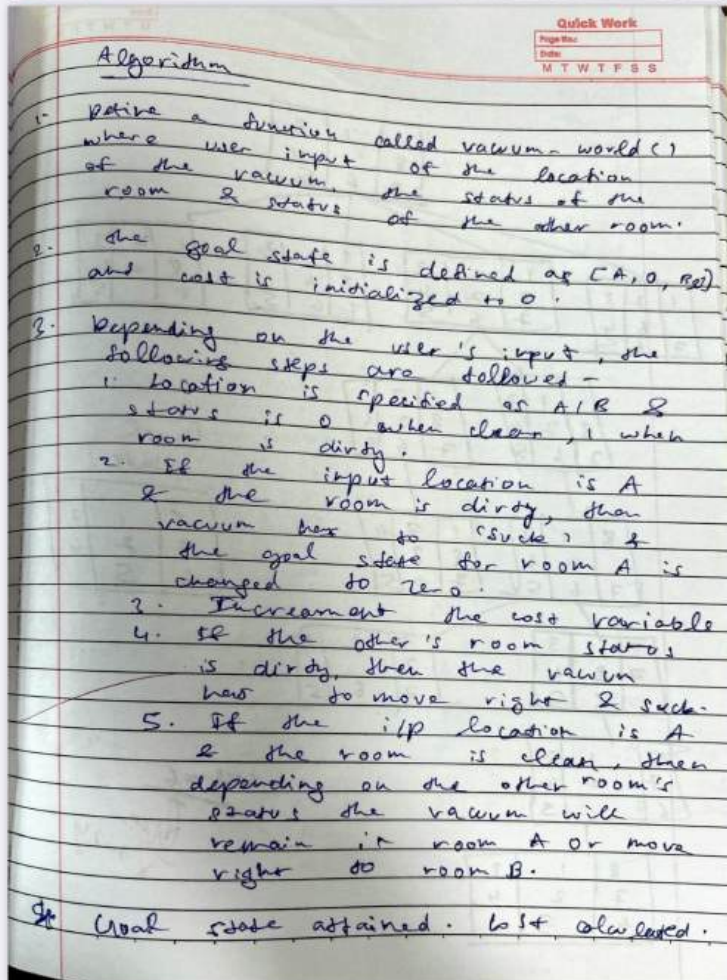 Quick Work
Page No.:
Date:
M T W T F S S
Algorithm
1. Define a function called vacuum-world()
where user input of the location
of the vacuum, the status of the
room & status of the other room.
2. the goal state is defined as [A, 0, B,
and cost is initialized to 0.
3. Depending on the user's input, the
following steps are followed -
1. Location is specified as A/B &
status is 0 when clean, 1 when
room is dirty.
2. If the input location is A
& the room is dirty, then
vacuum has to 'suck' &
the goal state for room A is
changed to zero.
3. Increament the cost variable
4. If the other's room status
is dirty, then the vacuum
has to move right & suck.
5. If the i/p location is A
& the room is clean, then
depending on the other room's
status the vacuum will
remain in room A or move
right to room B.
4. Goal state attained. Cost calculated.